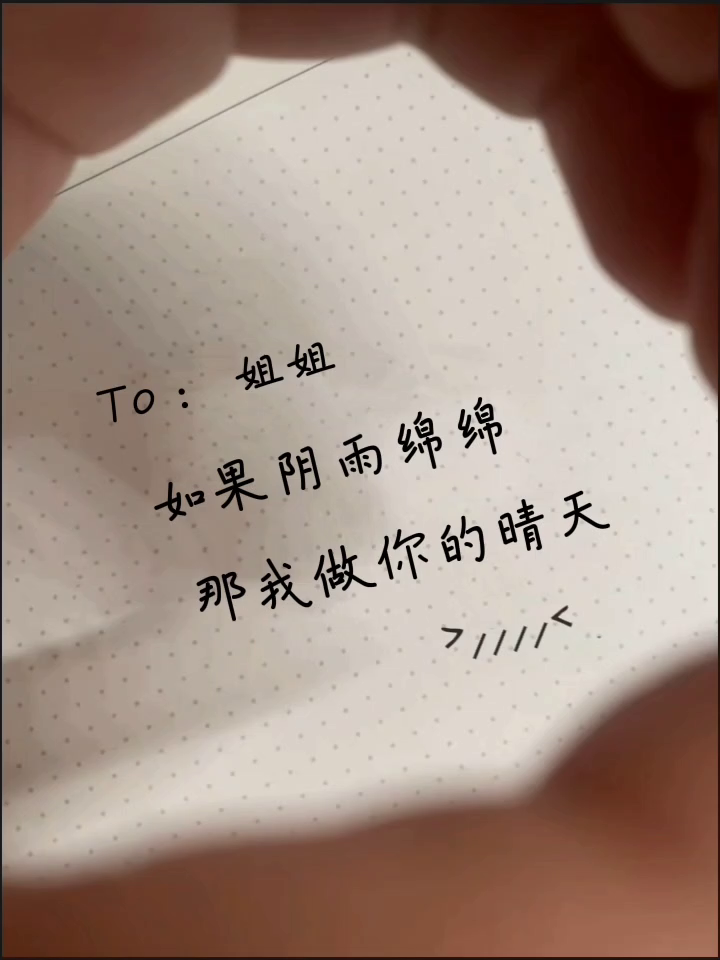 TO： 姐姐
如果阴雨绵绵
那我做你的晴天
>////<